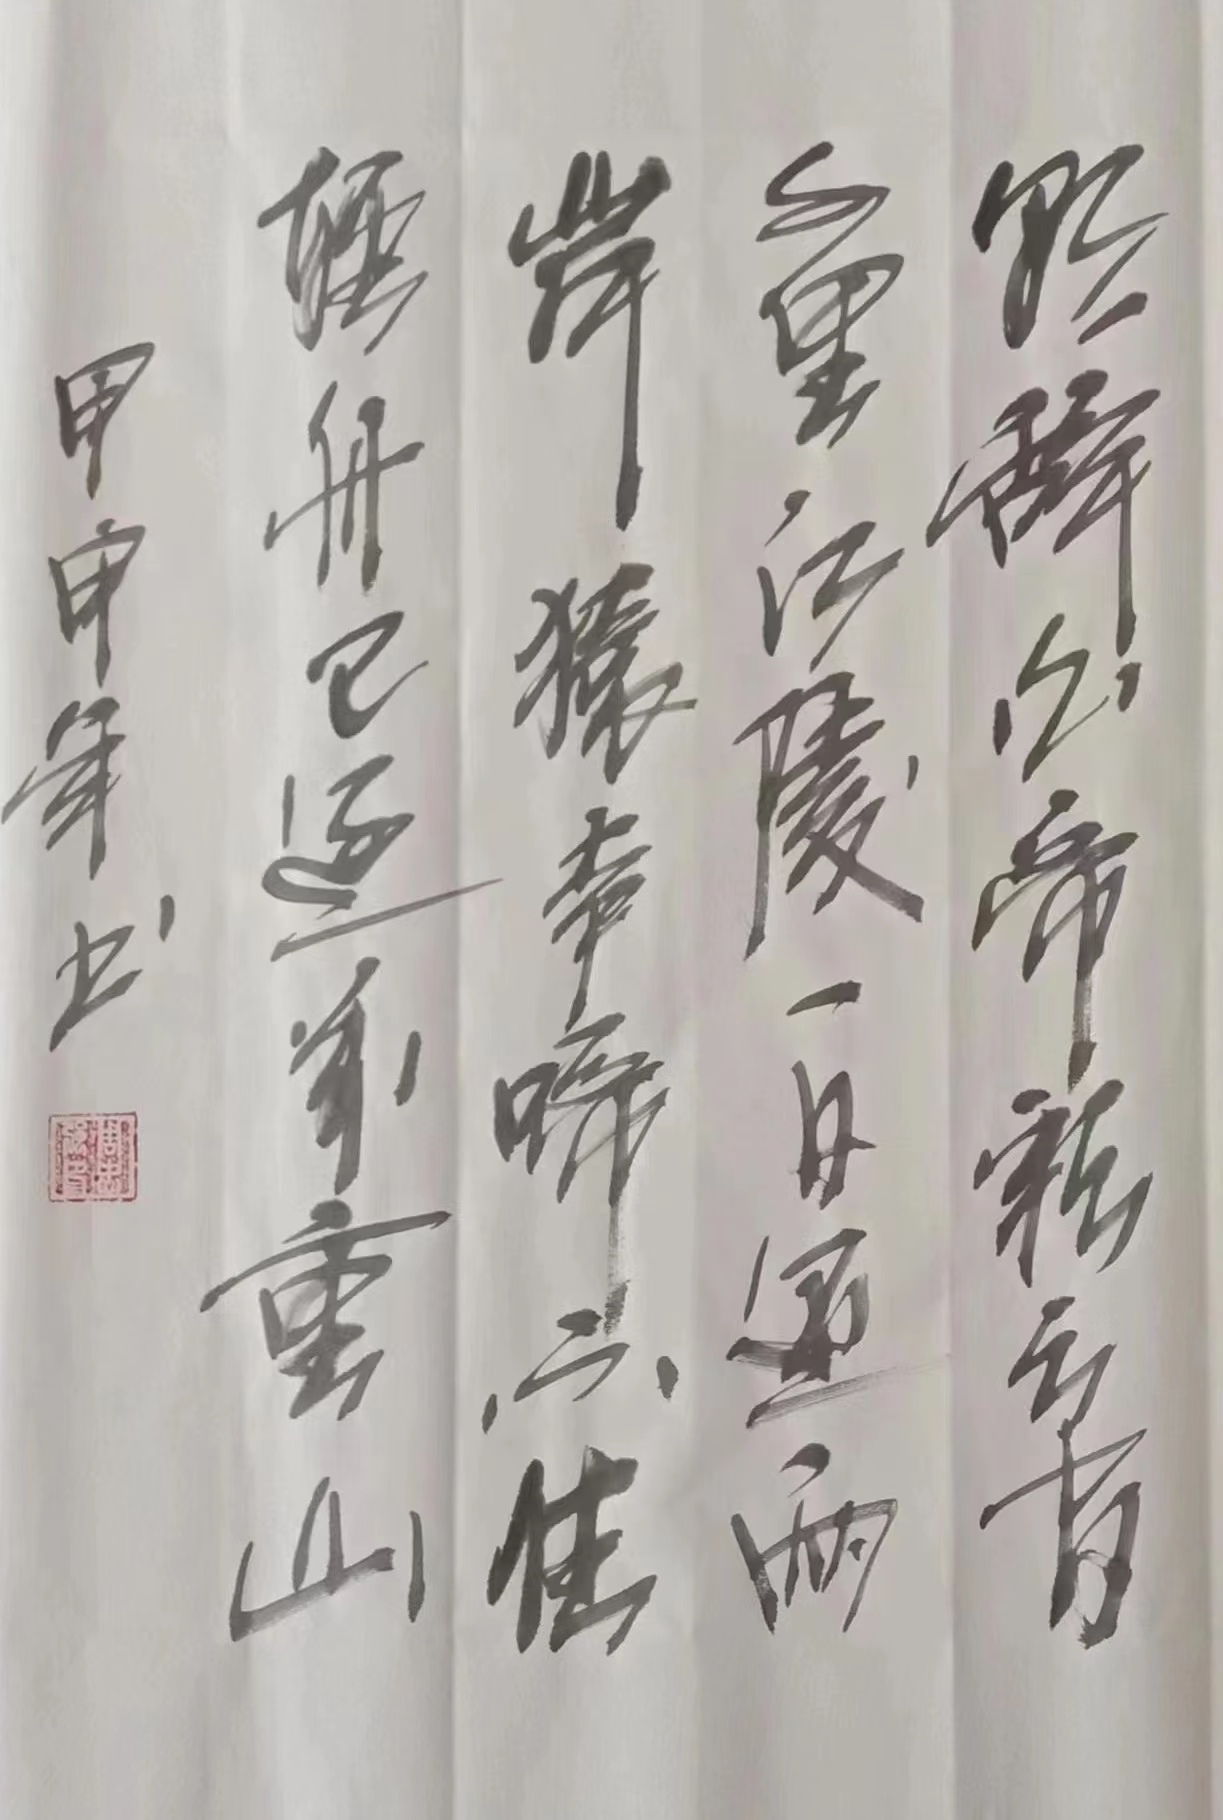 朝辭白帝彩云間
千里江陵一日還兩
岸猿声啼不住
輕舟已過萬重山
甲申年书